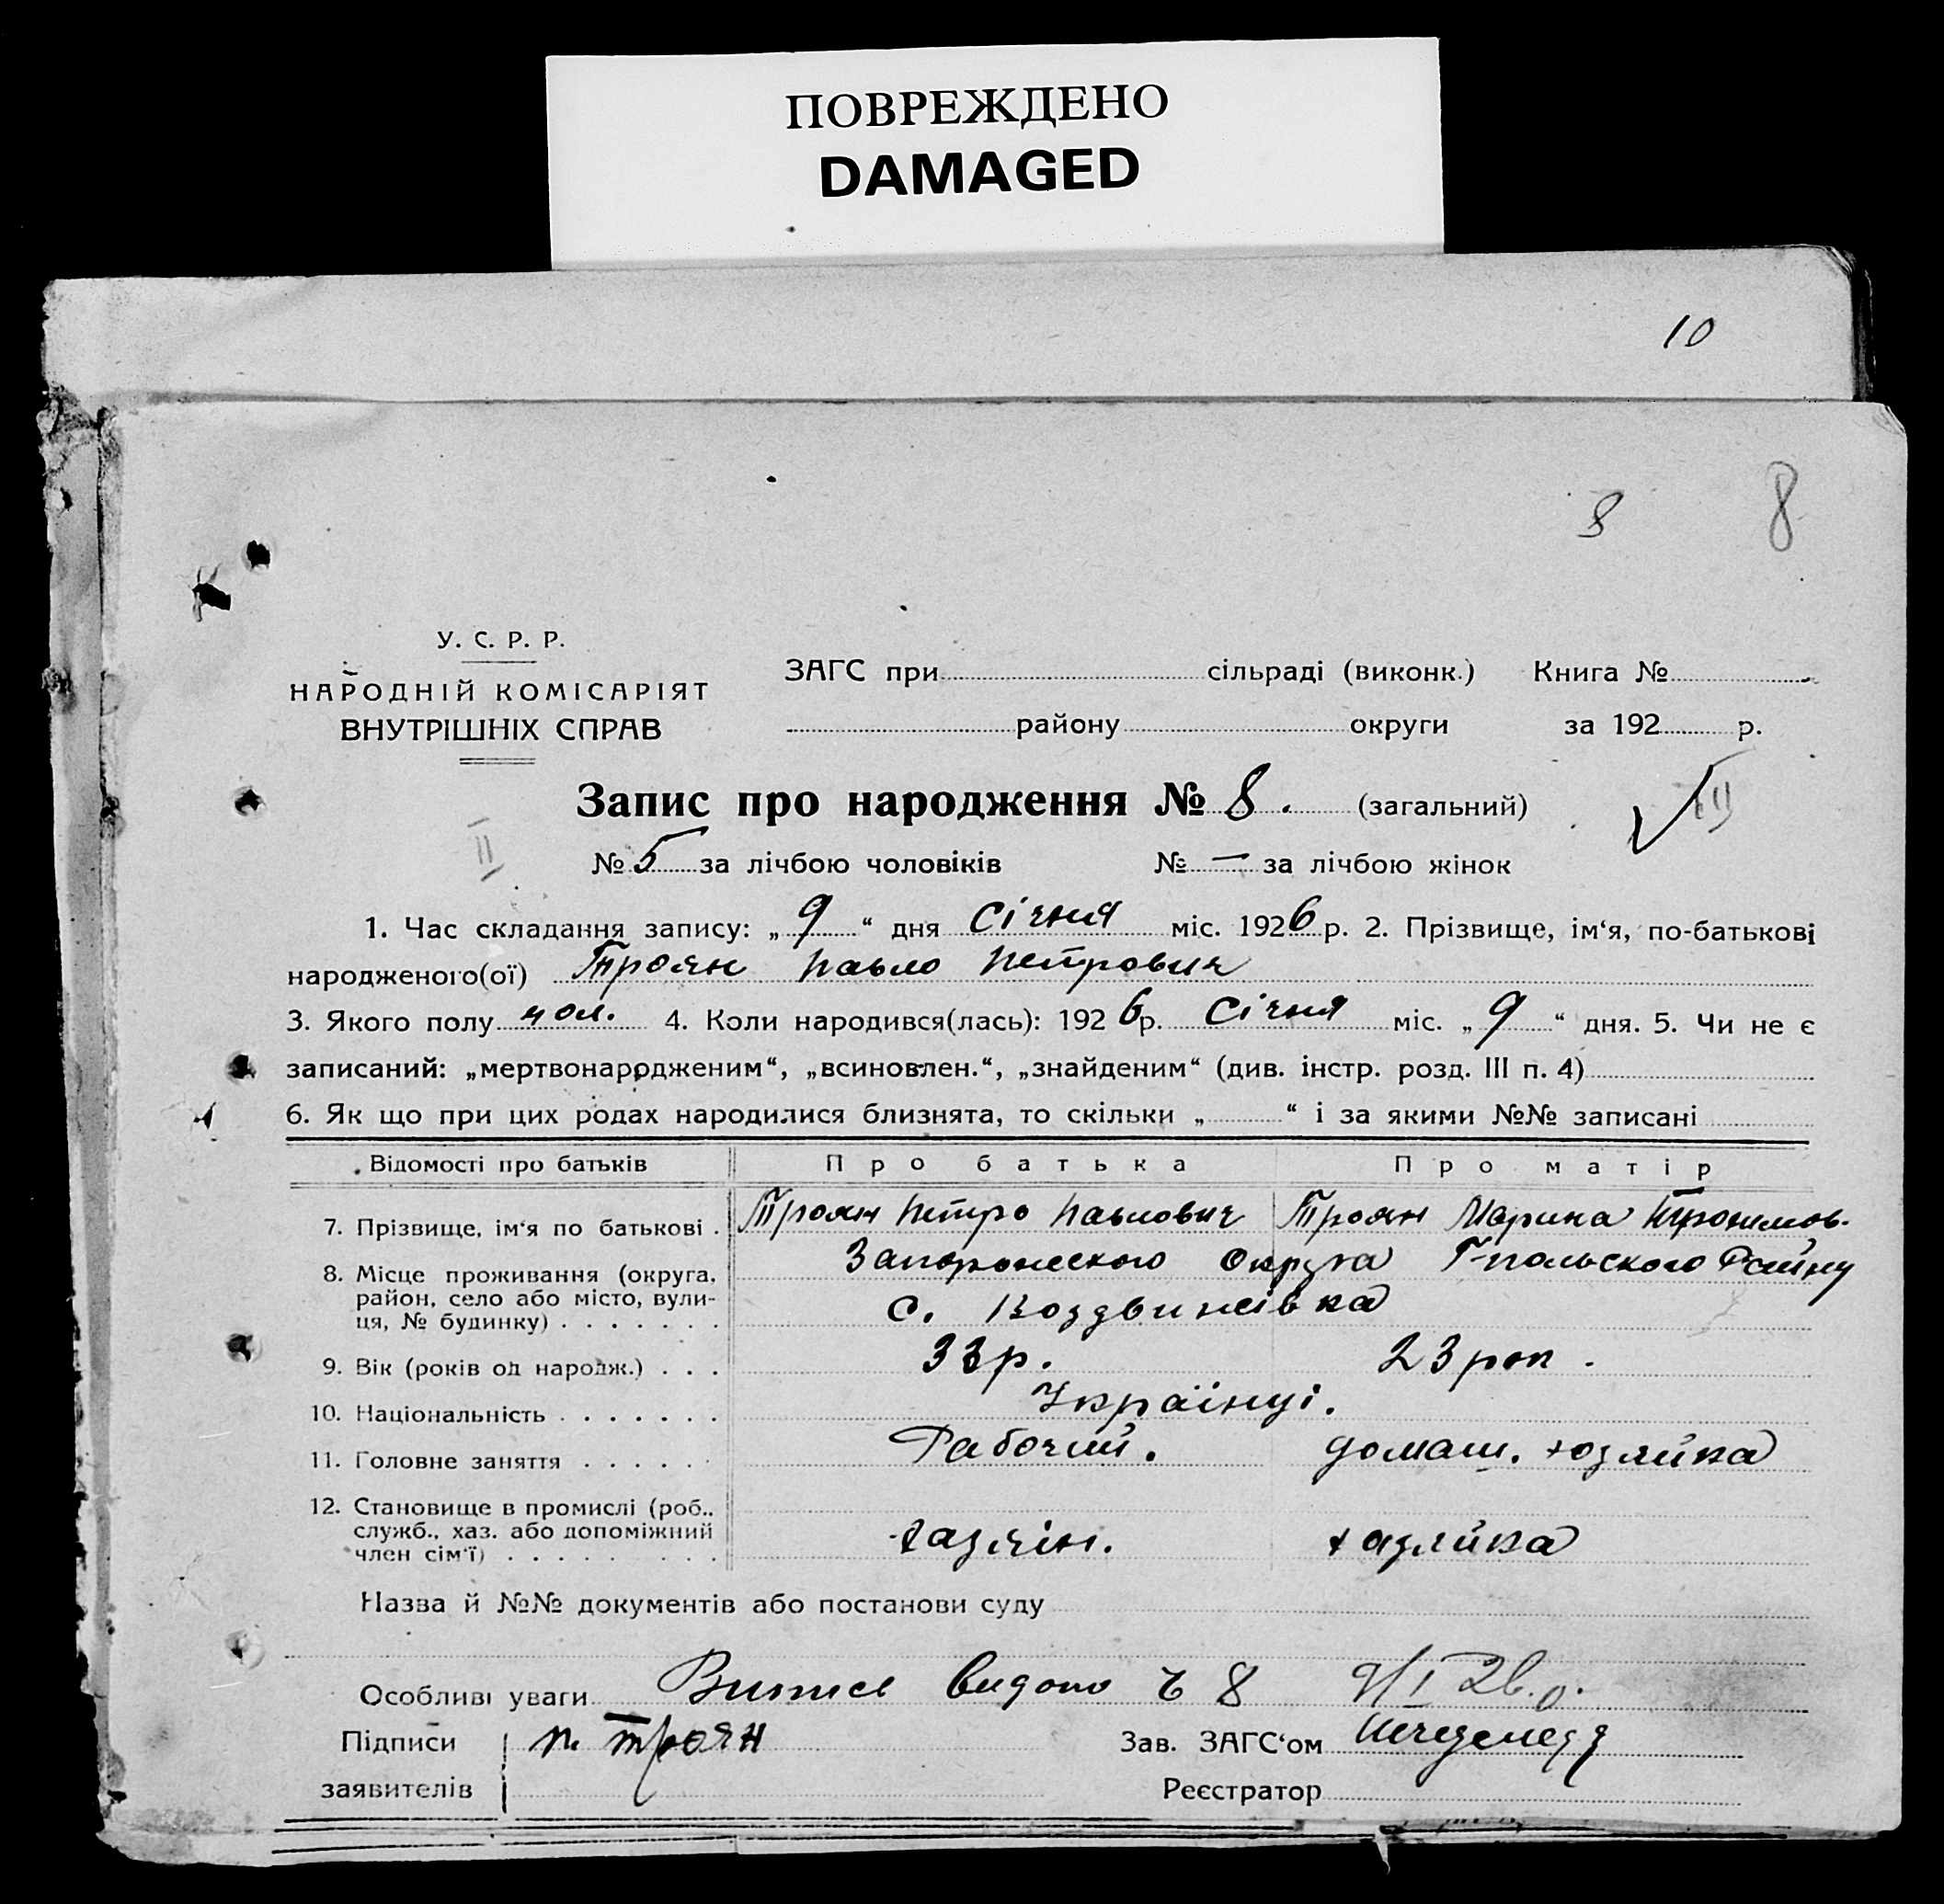 ПОВРЕЖДЕНО
DAMAGED
10
8 8
У. С. Р. Р.
НАРОДНІЙ КОМІСАРІЯТ
ВНУТРІШНІХ СПРАВ
ЗАГС при сільраді (виконк.) Книга №
району округи за 192 р.
Запис про народження № 8. (загальний)
II
№ 5 за лічбою чоловіків № — за лічбою жінок
1. Час складання запису: „ 9 “ дня Січня міс. 1926 р. 2. Прізвище, ім‘я, по-батькові
народженого(ої) Троян Павло Петрович
3. Якого полу чол. 4. Коли народився(лась): 192 6 р. Січня міс. „ 9 “ дня. 5. Чи не є
записаний: „мертвонародженим“, „всиновлен.“, „знайденим“ (див. інстр. розд. III п. 4)
6. Як що при цих родах народилися близнята, то скільки „ “ і за якими №№ записані
Відомості про батьків Про батька Про матір
7. Прізвище, ім‘я по батькові . Троян Петро Павлович Троян Марина Трохимов.
8. Місце проживання (округа, Запоріжского Округа Г-польского Району
район, село або місто, вули- с. Воздвижівка
ця, № будинку) . . . . . . .
9. Вік (років од народж.) . . . 33 р. 23 рок .
10. Національність . . . . . . . Українці.
11. Головне заняття . . . . . . Рабочий. домаш. хозяйка
12. Становище в промислі (роб.,
служб., хаз. або допоміжний хазяін. хазяйка
член сім‘ї) . . . . . . . . .
Назва й №№ документів або постанови суду
Особливі уваги Випись видано 8 9/I 26 р.
Підписи П. Троян Зав. ЗАГС‘ом
заявителів Реєстратор